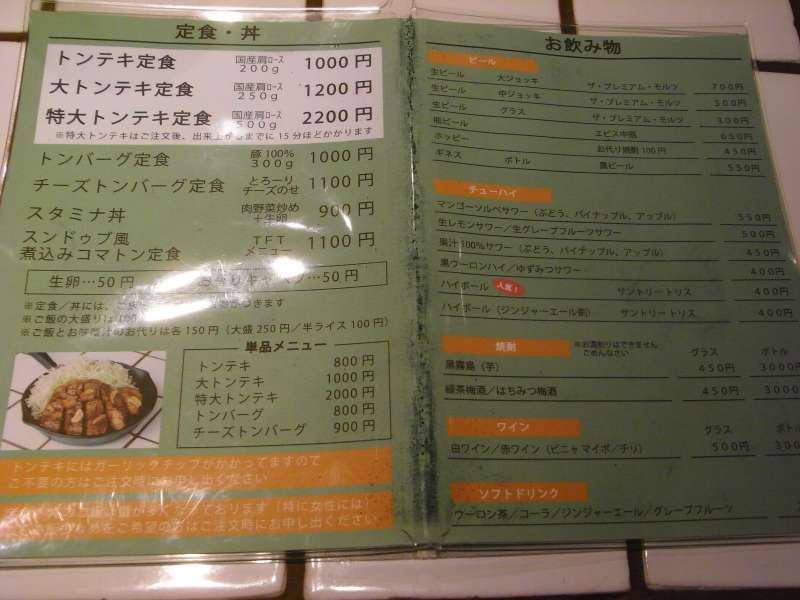 定食・丼
トンテキ定食 国産肩ロース 200g 1000円
大トンテキ定食 国産肩ロース 250g 1200円
特大トンテキ定食 国産肩ロース 500g 2200円
※特大トンテキはご注文後、出来上がるまでに15分ほどかかります
トンバーグ定食 豚100% 300g 1000円
チーズトンバーグ定食 とろーり チーズのせ 1100円
スタミナ丼 肉野菜炒め +生卵 900円
スンドゥブ風
煮込みコマトン定食 TFT メニュー 1100円
生卵…50円 お代りキャベツ…50円
※定食/丼には、ご飯 つきます
※ご飯の大盛りは100
※ご飯とお味噌汁のお代りは各150円(大盛250円/半ライス100円)
単品メニュー
トンテキ 800円
大トンテキ 1000円
特大トンテキ 2000円
トンバーグ 800円
チーズトンバーグ 900円
トンテキにはガーリックチップがかかってますので
ご不要の方はご注文時にお申し出ください
おります(特に女性には)
をご希望の方はご注文時にお申し出ください
お飲み物
ビール
生ビール 大ジョッキ ザ・プレミアム・モルツ 700円
生ビール 中ジョッキ ザ・プレミアム・モルツ 500円
生ビール グラス ザ・プレミアム・モルツ 300円
瓶ビール ヱビス中瓶 650円
ホッピー お代り焼酎100円 450円
ギネス ボトル 黒ビール 550円
チューハイ
マンゴーソルベサワー(ぶどう、パイナップル、アップル) 550円
生レモンサワー/生グレープフルーツサワー 500円
果汁100%サワー(ぶどう、パイナップル、アップル) 450円
黒ウーロンハイ/ゆずみつサワー 400円
ハイボール 人気! サントリートリス 400円
ハイボール(ジンジャーエール割) サントリートリス 400円
焼酎 ※お湯割りはできません ごめんなさい グラス ボトル
黒霧島(芋) 450円 3000円
緑茶梅酒/はちみつ梅酒 450円 3000
ワイン グラス ボトル
白ワイン/赤ワイン(ビニャマイポ/チリ) 500円 300
ソフトドリンク
ウーロン茶/コーラ/ジンジャーエール/グレープフルーツ